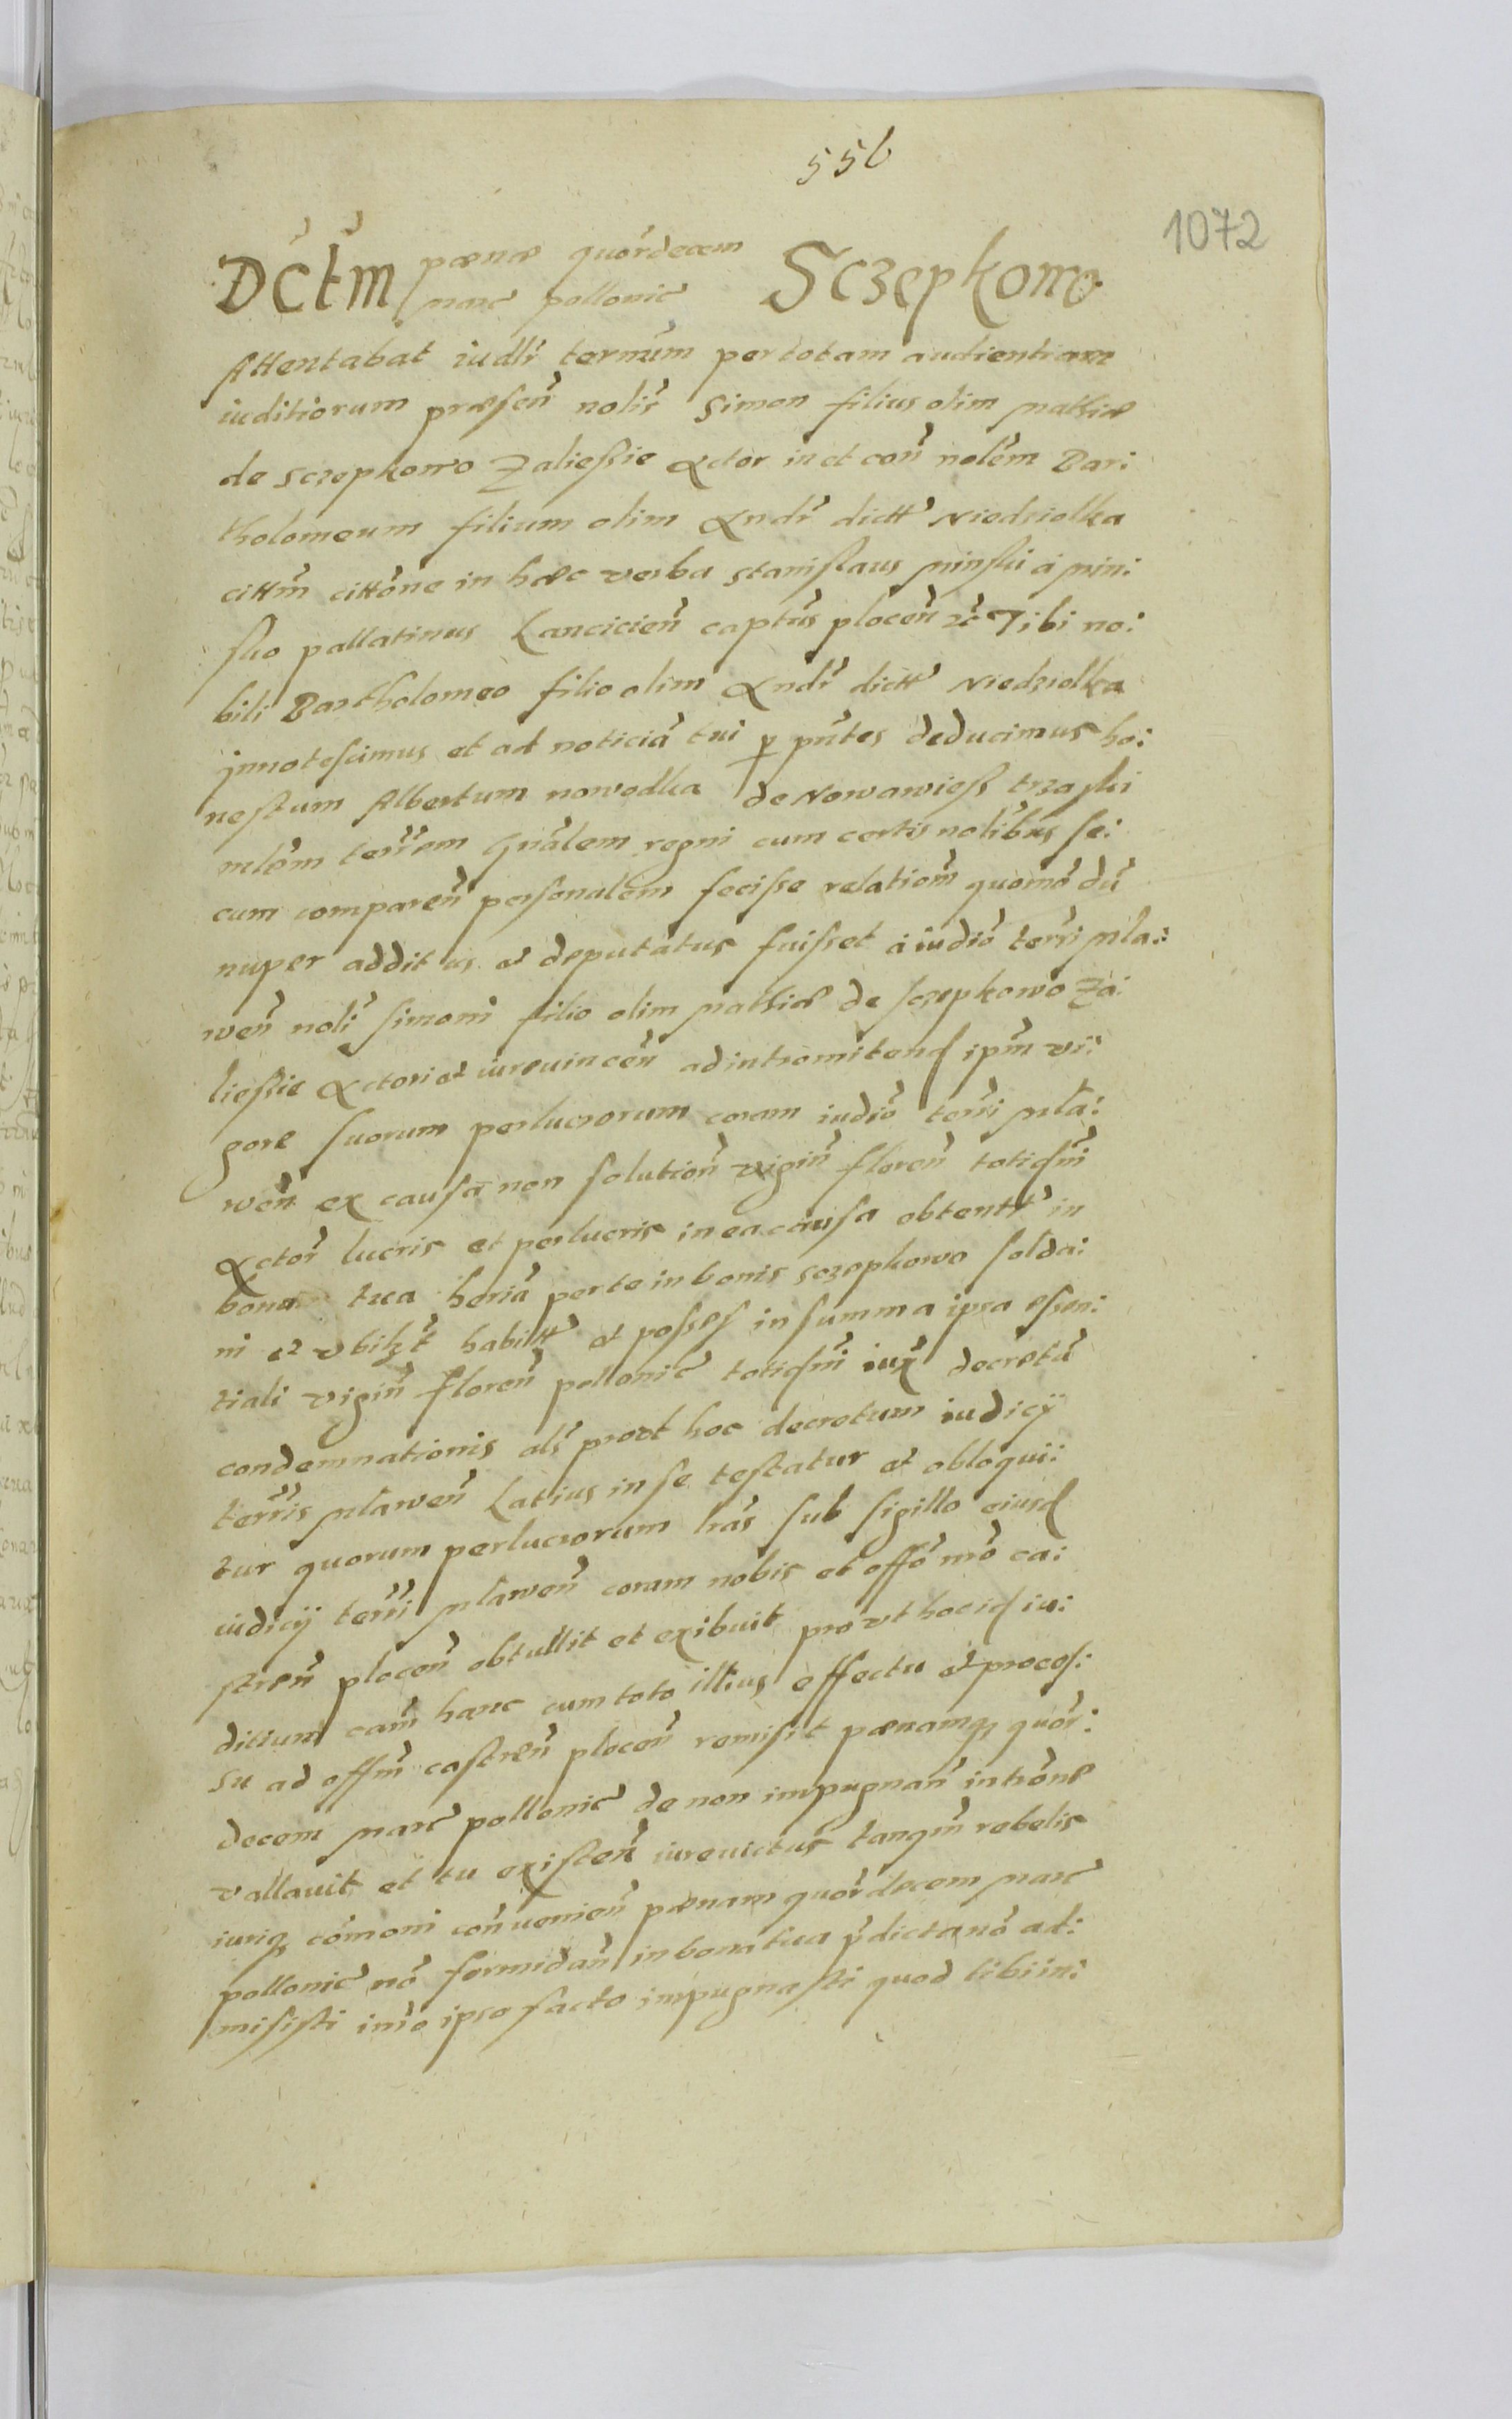 556
1072
Dctm pœnæ quordecem Sczepkowo
marc pollonic
Attentabat iudlr termum per totam audientiam
iuditiorum præsen nolis Simon filius olim mathiæ
de sczepkowo Zaliessie Actor in et con nolem Bar:
tholomeum filium olim Andr dictt Niedziolka
cittm cittone in hæc verba Stanislaus minski á min:
sko pallatinus Lancicien captus plocen etc Tibi no:
bili Bartholomeo filio olim Andr dictt Niedziolka
innotescimus et ad noticia tui p pntes deducimus ho:
nestum Albertum nowodka de Nowawiess trzaski
mlem terrem Gnalem regni cum certis nolibus se:
cum comparen personalem fecisse relationem quomo du
nuper additus et deputatus fuisset á iudio terri mla:
wen noli Simoni filio olim mathiæ de sczepkowo Za:
liessie Actori et iurevincen ad intromitend ipm vi:
gore suorum perlucrorum coram iudio terri mla:
wen ex causa non solution vigin floren totidm
Actor lucris et perlucris in ea causa obtentt in
bona tua heria per te in bonis sczepkowo solda:
ni et vbilzt habitt et posses in summa ipsa essen:
tiali vigin floren pollonic totidm iux decretu
condemnationis als prout hoc decretum iudicÿ
terris mlawen Latius in se testatur et obloqui:
tur quorum perlucrorum lras sub sigillo eiusd
iudicij terri mlawen coram nobis et offo nro ca:
stren plocen obtullit et exibuit pro vt hoc id iu:
ditium cam hanc cum toto illius effectu et proces:
su ad offm castren plocen remisit pænamq quor:
decem marc pollonic de non impugnan introne
vallavit et tu existen iurevictus tanqm rebelis
iuriq comoni convenien pænam quordecem marc
pollonic no formidan in bona tua pdicta no ad:
misisti imo ipso facto impugnasti quod tibi in: